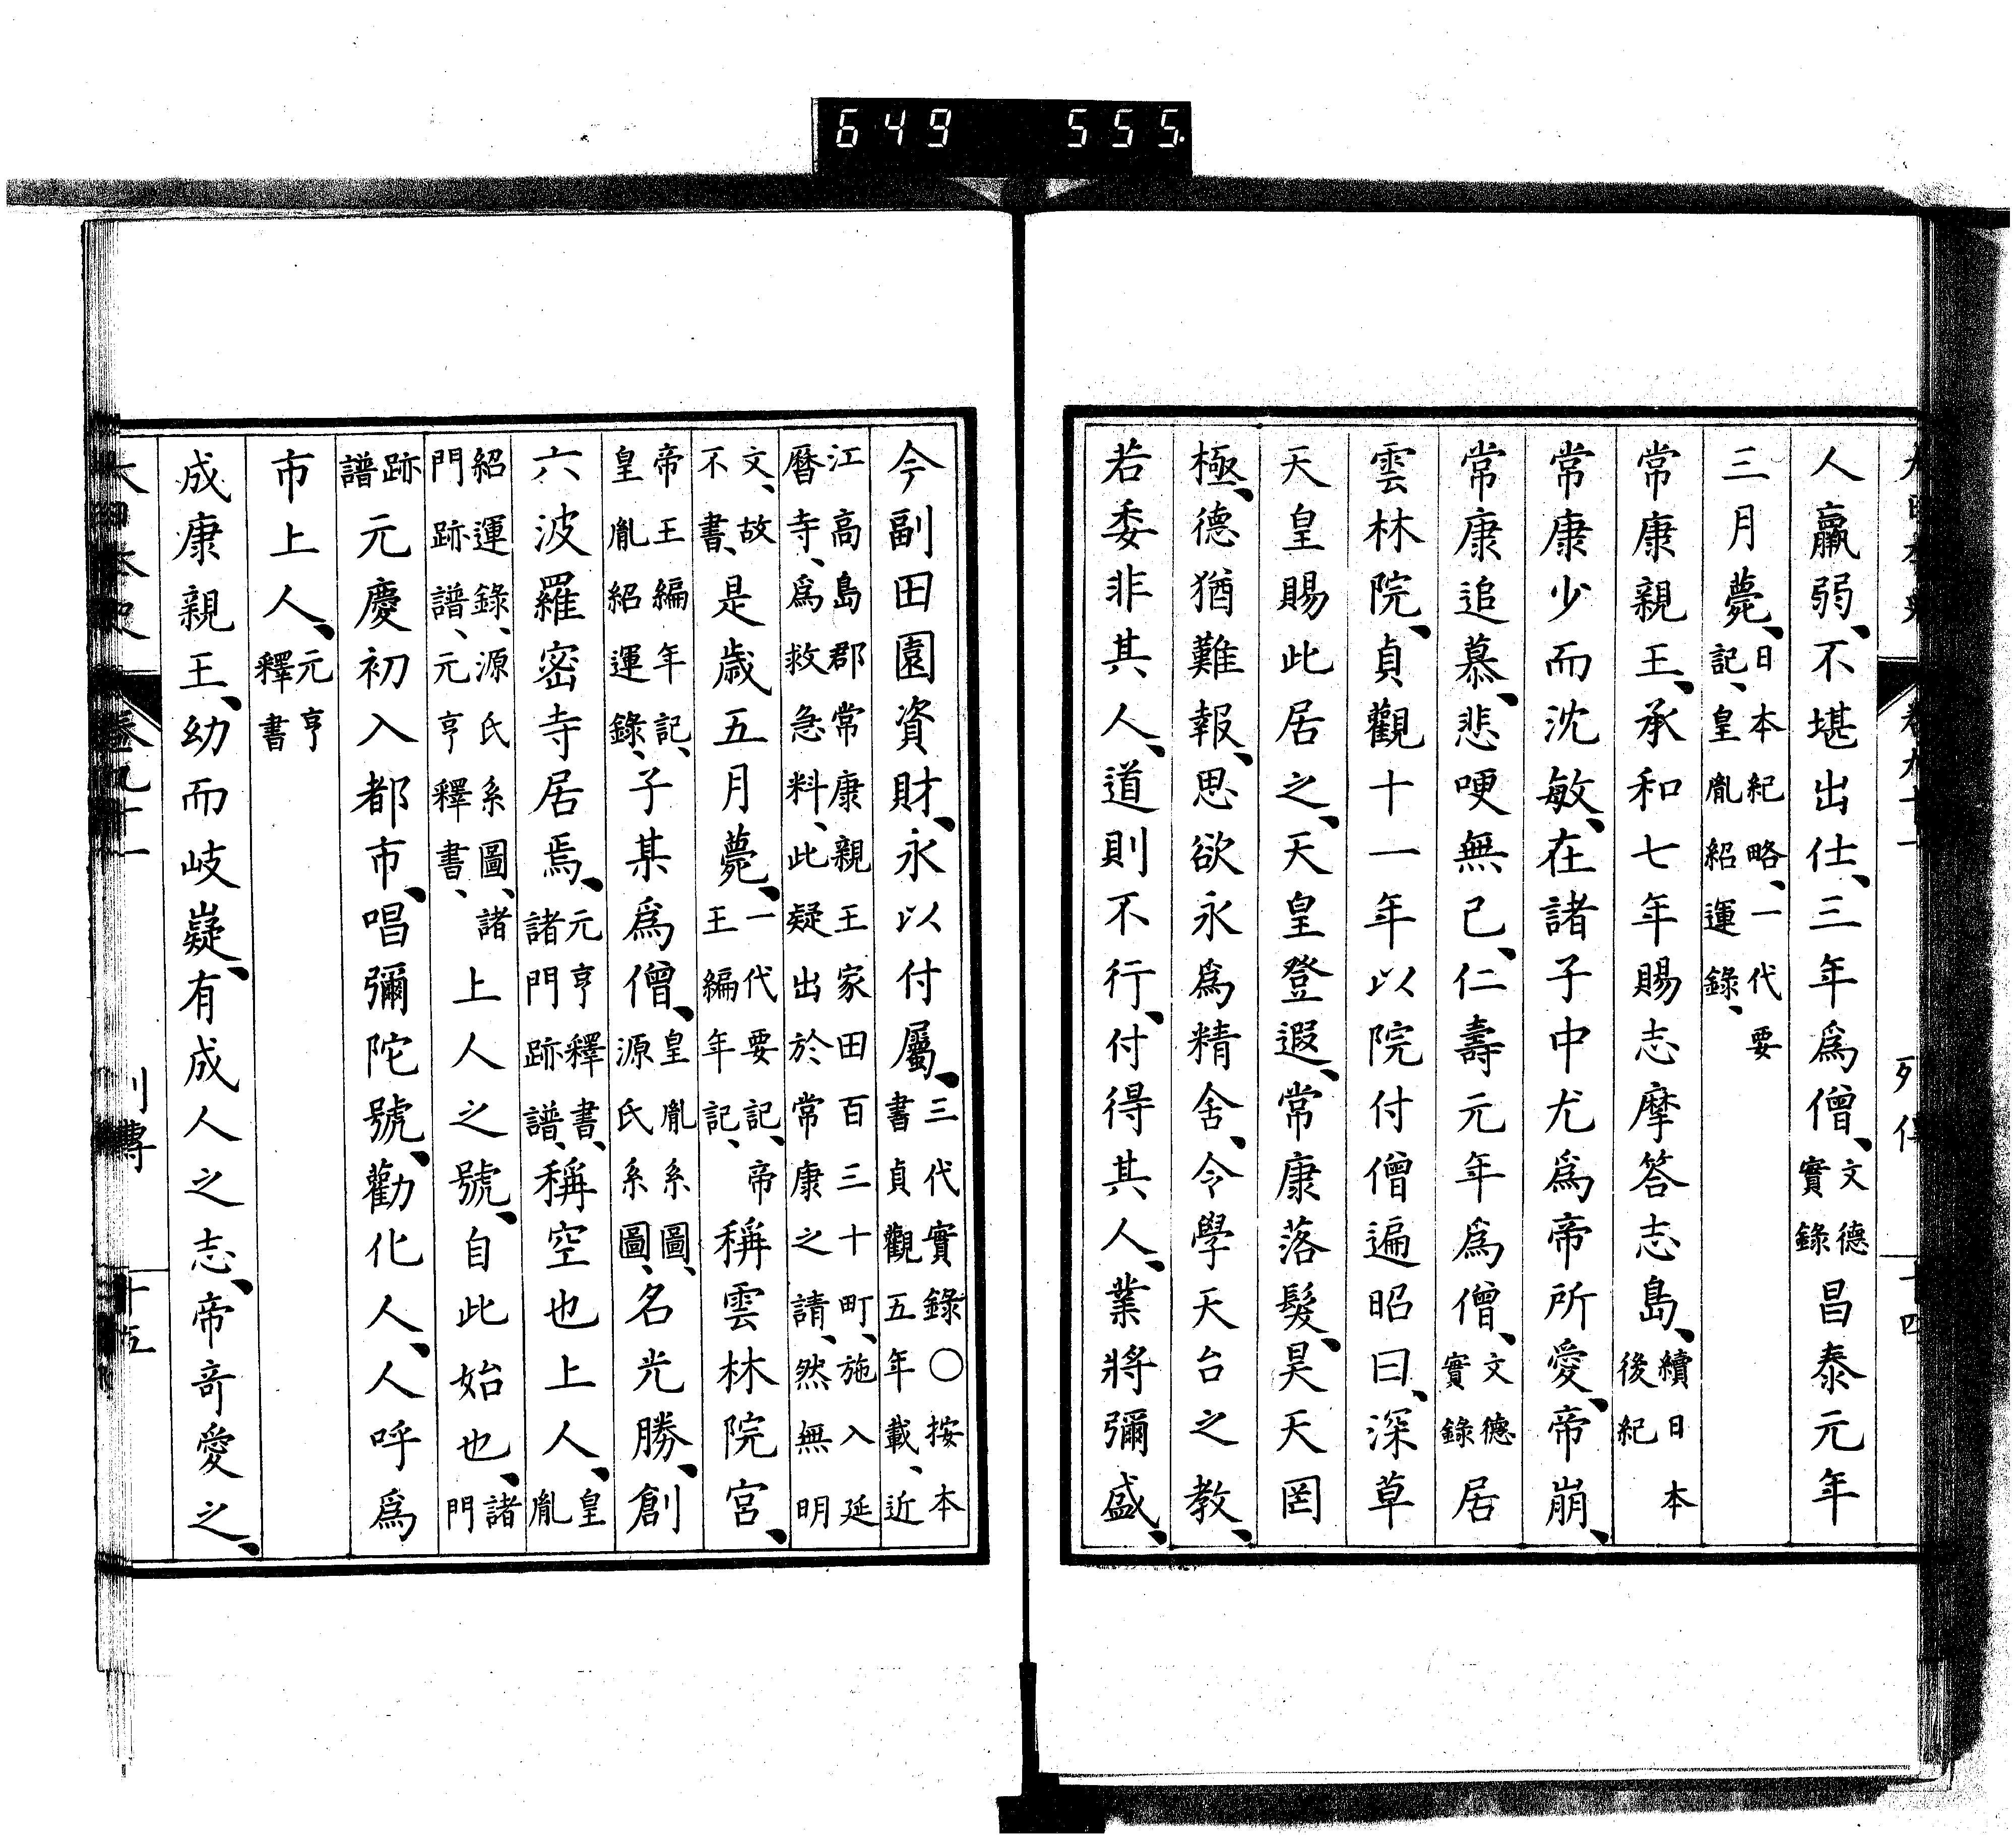 大日本史 卷九十一 列傳 十四
人羸弱、不堪出仕、三年爲僧、文德實錄昌泰元年
三月薨、日本紀略、一代要記、皇胤紹運錄、
常康親王、承和七年賜志摩答志島、續日本後紀
常康少而沈敏、在諸子中尤爲帝所愛、帝崩、
常康追慕、悲哽無已、仁壽元年爲僧、文德實錄居
雲林院、貞觀十一年以院付僧遍昭曰、深草
天皇賜此居之、天皇登遐、常康落髮、昊天罔
極、德猶難報、思欲永爲精舍、令學天台之教、
若委非其人、道則不行、付得其人、業將彌盛、
今副田園資財、永以付屬、三代實錄○按本書貞觀五年載、近
江高島郡常康親王家田百三十町、施入延曆寺、爲救急料、此疑出於常康之請、然無明
文、故不書、是歲五月薨、一代要記、帝王編年記、稱雲林院宮、
帝王編年記、皇胤紹運錄、子某爲僧、皇胤系圖、源氏系圖、名光勝、創
六波羅密寺居焉、元亨釋書、諸門跡譜、稱空也上人、皇胤
紹運錄、源氏系圖、諸門跡譜、元亨釋書、上人之號、自此始也、諸門
跡譜元慶初入都市、唱彌陀號、勸化人、人呼爲
市上人、元亨釋書
成康親王、幼而岐嶷、有成人之志、帝奇愛之、
大日本史 卷九十一 列傳 十五
649 555